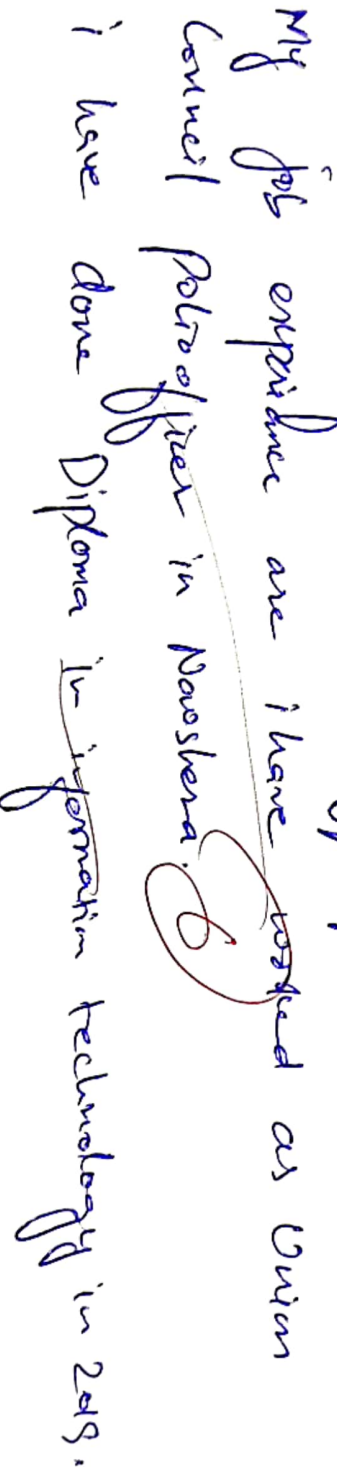 My job experience are i have worked as Union
Council Polio officer in Nowshera.
6
i have done Diploma in information technology in 2019.